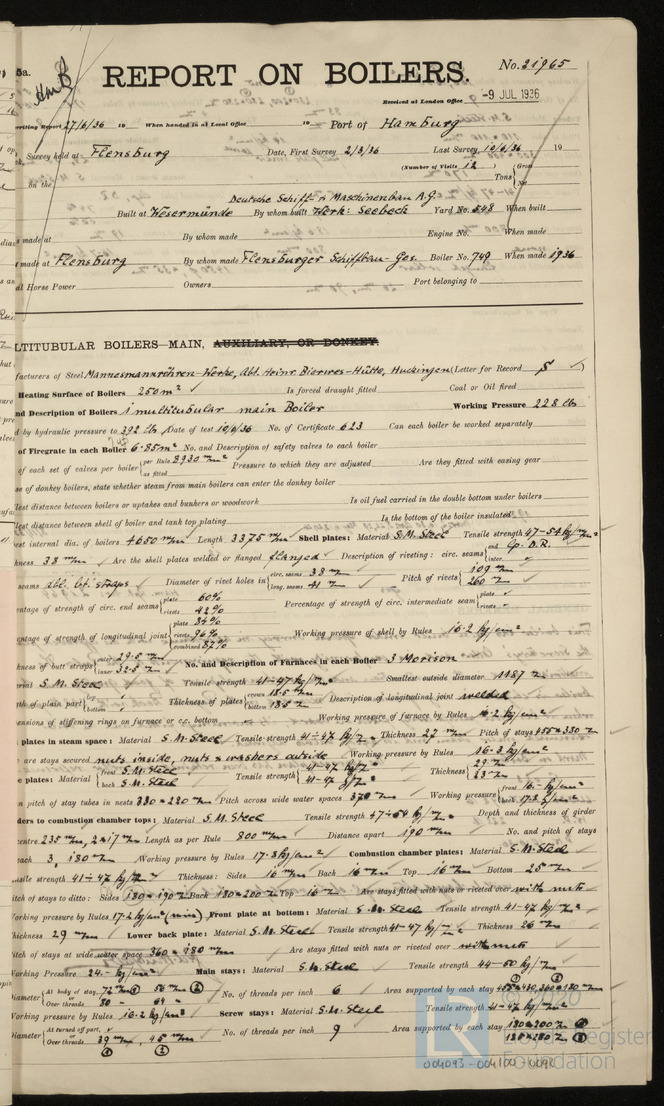 5a.
REPORT ON BOILERS.
No. 21965
Received at London Office -9 JUL 1936
writing Report 27/6/36 19 When handed in at Local Office 19 Port of Hamburg
Survey held at Flensburg Date, First Survey 2/3/36 Last Survey 10/6/36 19
(Number of Visits 12) Gross
on the Tons Net
Deutsche Schiff- & Maschinenbau A.G
Built at Wesermünde By whom built Werk: Seebeck Yard No. 548 When built
made at By whom made Engine No. When made
made at Flensburg By whom made Flensburger Schiffbau-Ges. Boiler No. 749 When made 1936
al Horse Power Owners Port belonging to
LTITUBULAR BOILERS—MAIN, AUXILIARY, OR DONKEY.
facturers of Steel Mannesmannröhren-Werke, Abt. Heinr. Bierwes-Hütte, Huckingen (Letter for Record S )
Heating Surface of Boilers 250 m² Is forced draught fitted Coal or Oil fired
nd Description of Boilers 1 multitubular main Boiler Working Pressure 228 lbs
d by hydraulic pressure to 392 lbs Date of test 10/6/36 No. of Certificate 623 Can each boiler be worked separately
of Firegrate in each Boiler 6.85 m² No. and Description of safety valves to each boiler
of each set of valves per boiler per Rule 8930 mm² as fitted Pressure to which they are adjusted Are they fitted with easing gear
se of donkey boilers, state whether steam from main boilers can enter the donkey boiler
lest distance between boilers or uptakes and bunkers or woodwork Is oil fuel carried in the double bottom under boilers
lest distance between shell of boiler and tank top plating Is the bottom of the boiler insulated
est internal dia. of boilers 4650 mm Length 3375 mm Shell plates: Material S.M. Steel Tensile strength 47-54 kg/mm²
kness 38 mm Are the shell plates welded or flanged flanged Description of riveting: circ. seams end Lp. D.R. inter.
seams dbl. bt. straps Diameter of rivet holes in circ. seams 38 mm long. seams 41 Pitch of rivets 109 mm 260
entage of strength of circ. end seams plate 60% rivets 42% Percentage of strength of circ. intermediate seam plate rivets
entage of strength of longitudinal joint plate 84% rivets 96% combined 82% Working pressure of shell by Rules 16.2 kg/cm²
kness of butt straps outer 29.5 inner 32.5 No. and Description of Furnaces in each Boiler 3 Morison
rial S.M. Steel Tensile strength 41-47 kg/mm² Smallest outside diameter 1187
th of plain part top bottom Thickness of plates crown 18.5 mm bottom 18.5 Description of longitudinal joint welded
ensions of stiffening rings on furnace or c.c. bottom Working pressure of furnace by Rules 16.2 kg/cm²
plates in steam space: Material S.M. Steel Tensile strength 41-47 kg/mm² Thickness 27 mm Pitch of stays 455 x 330
are stays secured nuts inside, nuts & washers outside Working pressure by Rules 16.3 kg/cm²
e plates: Material front S.M. Steel back S.M. Steel Tensile strength 41-47 kg/mm² 41-47 Thickness 29 mm 23
n pitch of stay tubes in nests 330 x 220 mm Pitch across wide water spaces 370 mm Working pressure front 16.- kg/cm² back 17.8 kg/cm²
ders to combustion chamber tops: Material S.M. Steel Tensile strength Depth and thickness of girder
centre 235 mm, 2x17 mm Length as per Rule 800 mm Distance apart 190 mm No. and pitch of stays
each 3, 180 mm Working pressure by Rules 17.8 kg/cm² Combustion chamber plates: Material S.M. Steel
nsile strength 41-47 kg/mm² Thickness: Sides 16 mm Back 16 mm Top 16 mm Bottom 25 mm
itch of stays to ditto: Sides 180 x 190 Back 180 x 200 Top Are stays fitted with nuts or riveted over with nuts
orking pressure by Rules 17.2 kg/cm² (min) Front plate at bottom: Material S.M. Steel Tensile strength 41-47 kg/mm²
hickness 29 mm Lower back plate: Material S.M. Steel Tensile strength 41-47 kg/mm² Thickness 26 mm
Pitch of stays at wide water space 360 x 180 mm Are stays fitted with nuts or riveted over with nuts
Working Pressure 24.- kg/cm² Main stays: Material S.M. Steel Tensile strength 44-50 kg/mm²
Diameter At body of stay, Over threads No. of threads per inch 6 Area supported by each stay
Working pressure by Rules 16.2 kg/cm² Screw stays: Material S.M. Steel Tensile strength 41-47 kg/mm²
Diameter At turned off part, Over threads 39 mm, 45 mm No. of threads per inch 9 Area supported by each stay 180 x 200
LR
© 2020
Lloyd's Register
Foundation
004093-004100-0092